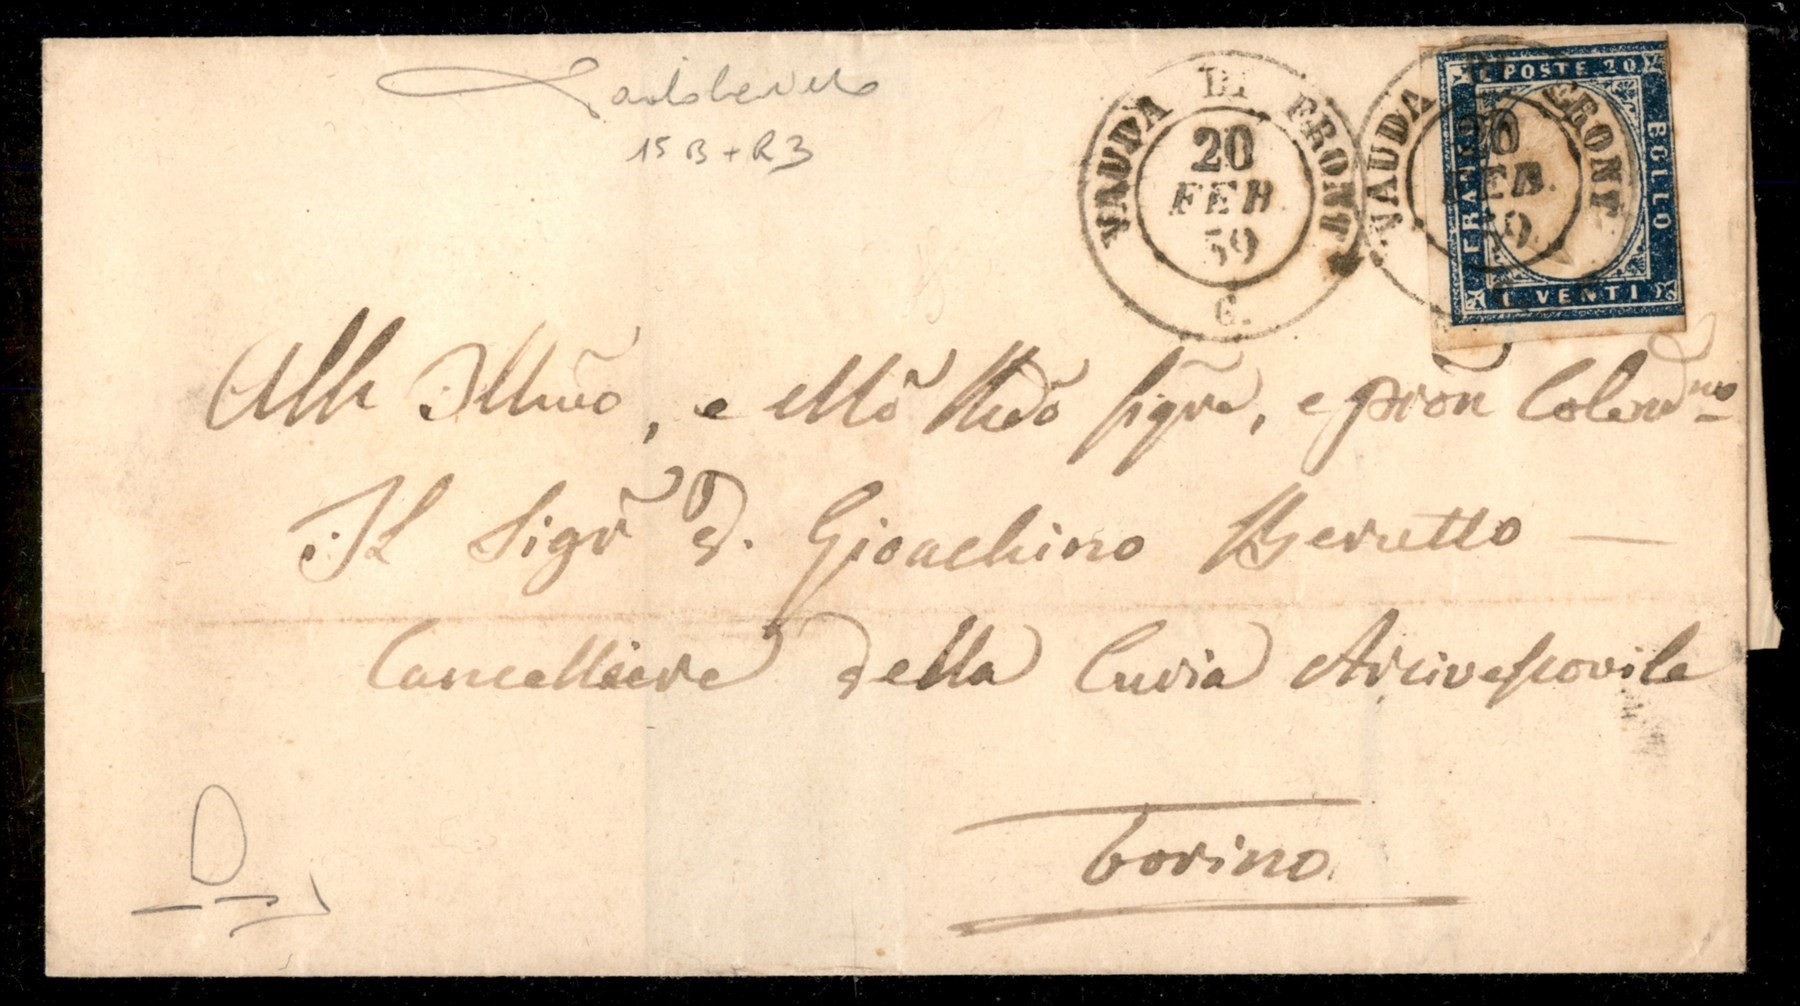 15 B + R3
VAUDA DI FRONT
20
FEB
59
C.
VAUDA DI FRONT
20
FEB.
59
C. POSTE 20
FRANCO
BOLLO
C. VENTI
All' Illmo, e Mto Rdo Sigre, e pron Colendmo
Il Sigr D. Gioachino Berutto —
Cancelliere della Curia Arcivescovile
Torino